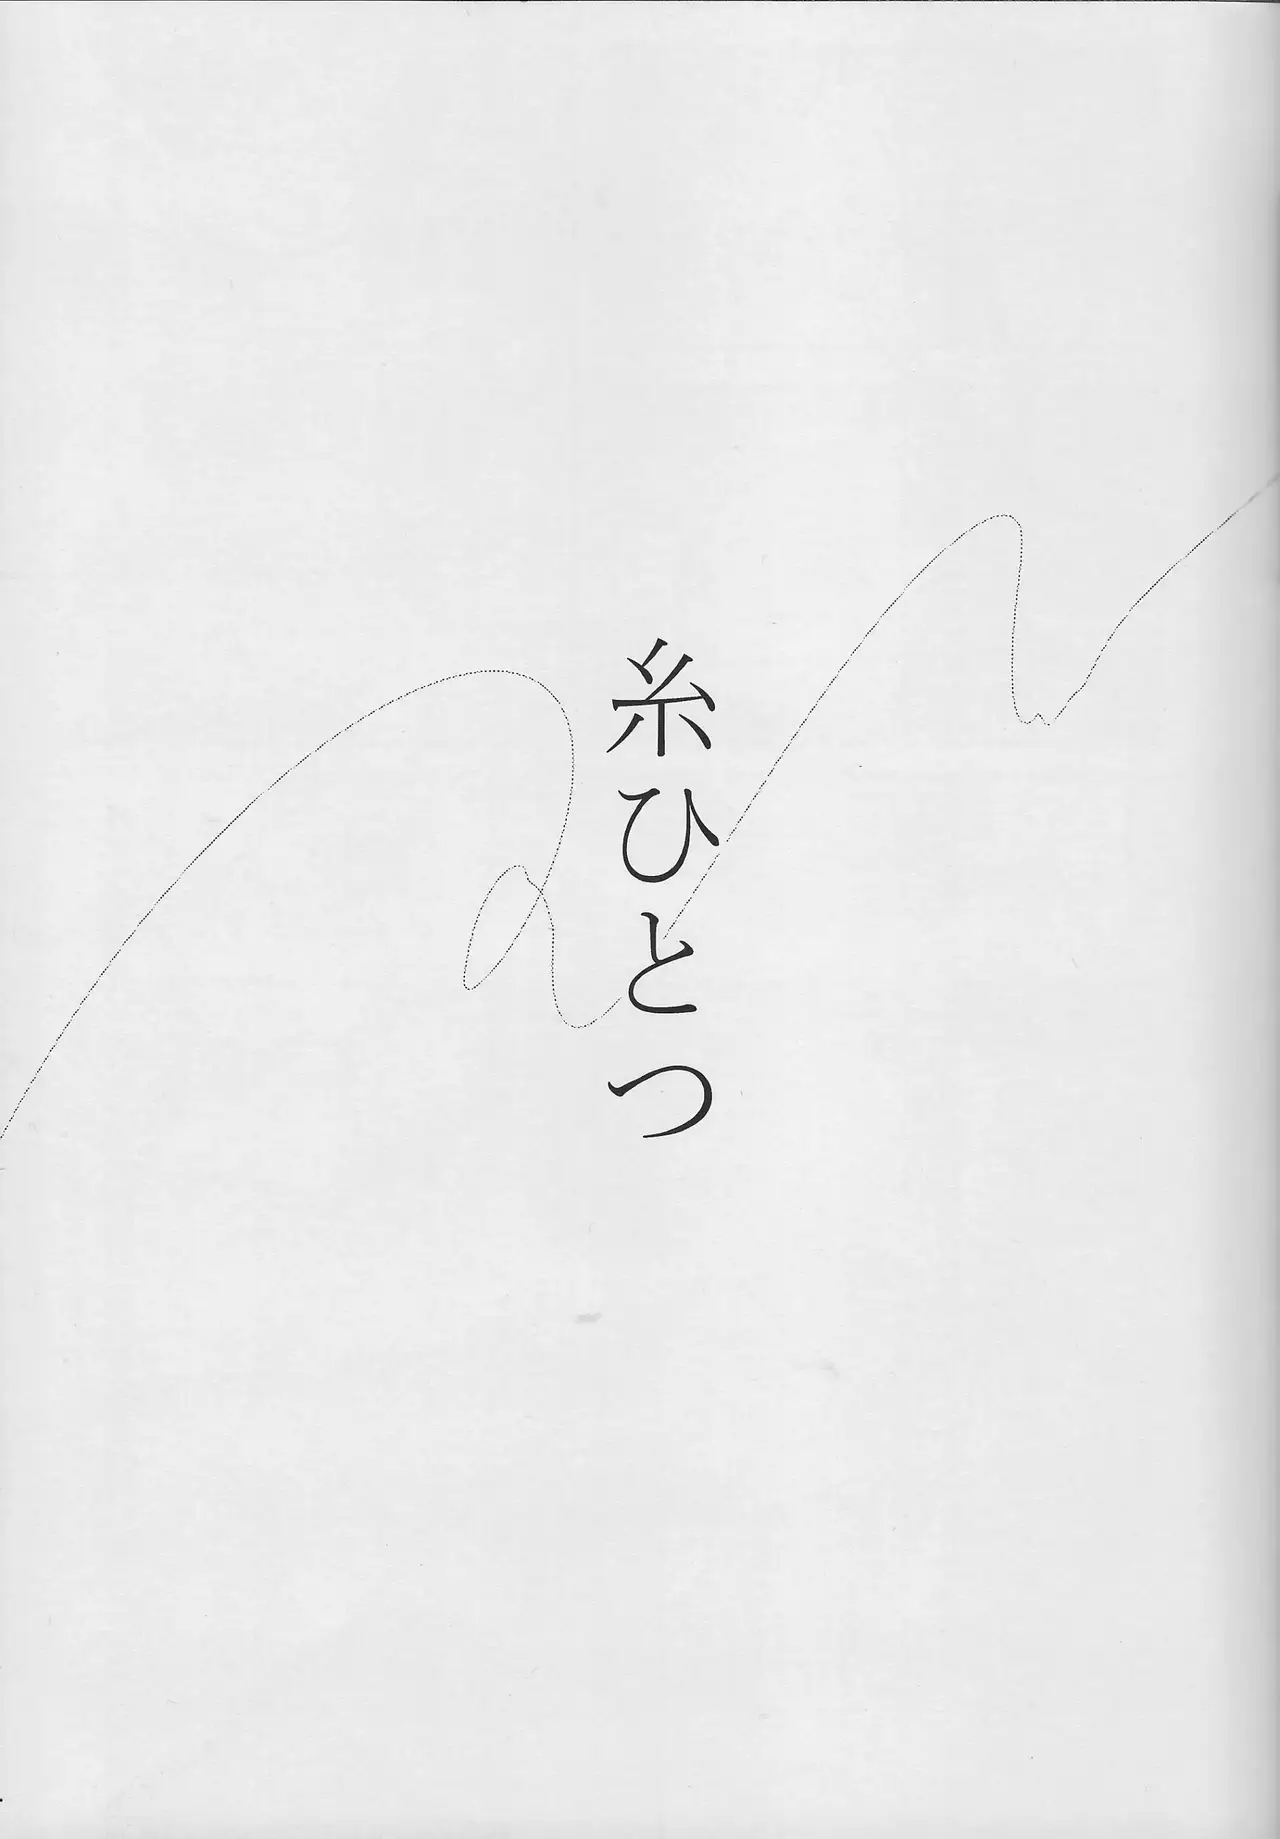 糸ひとつ